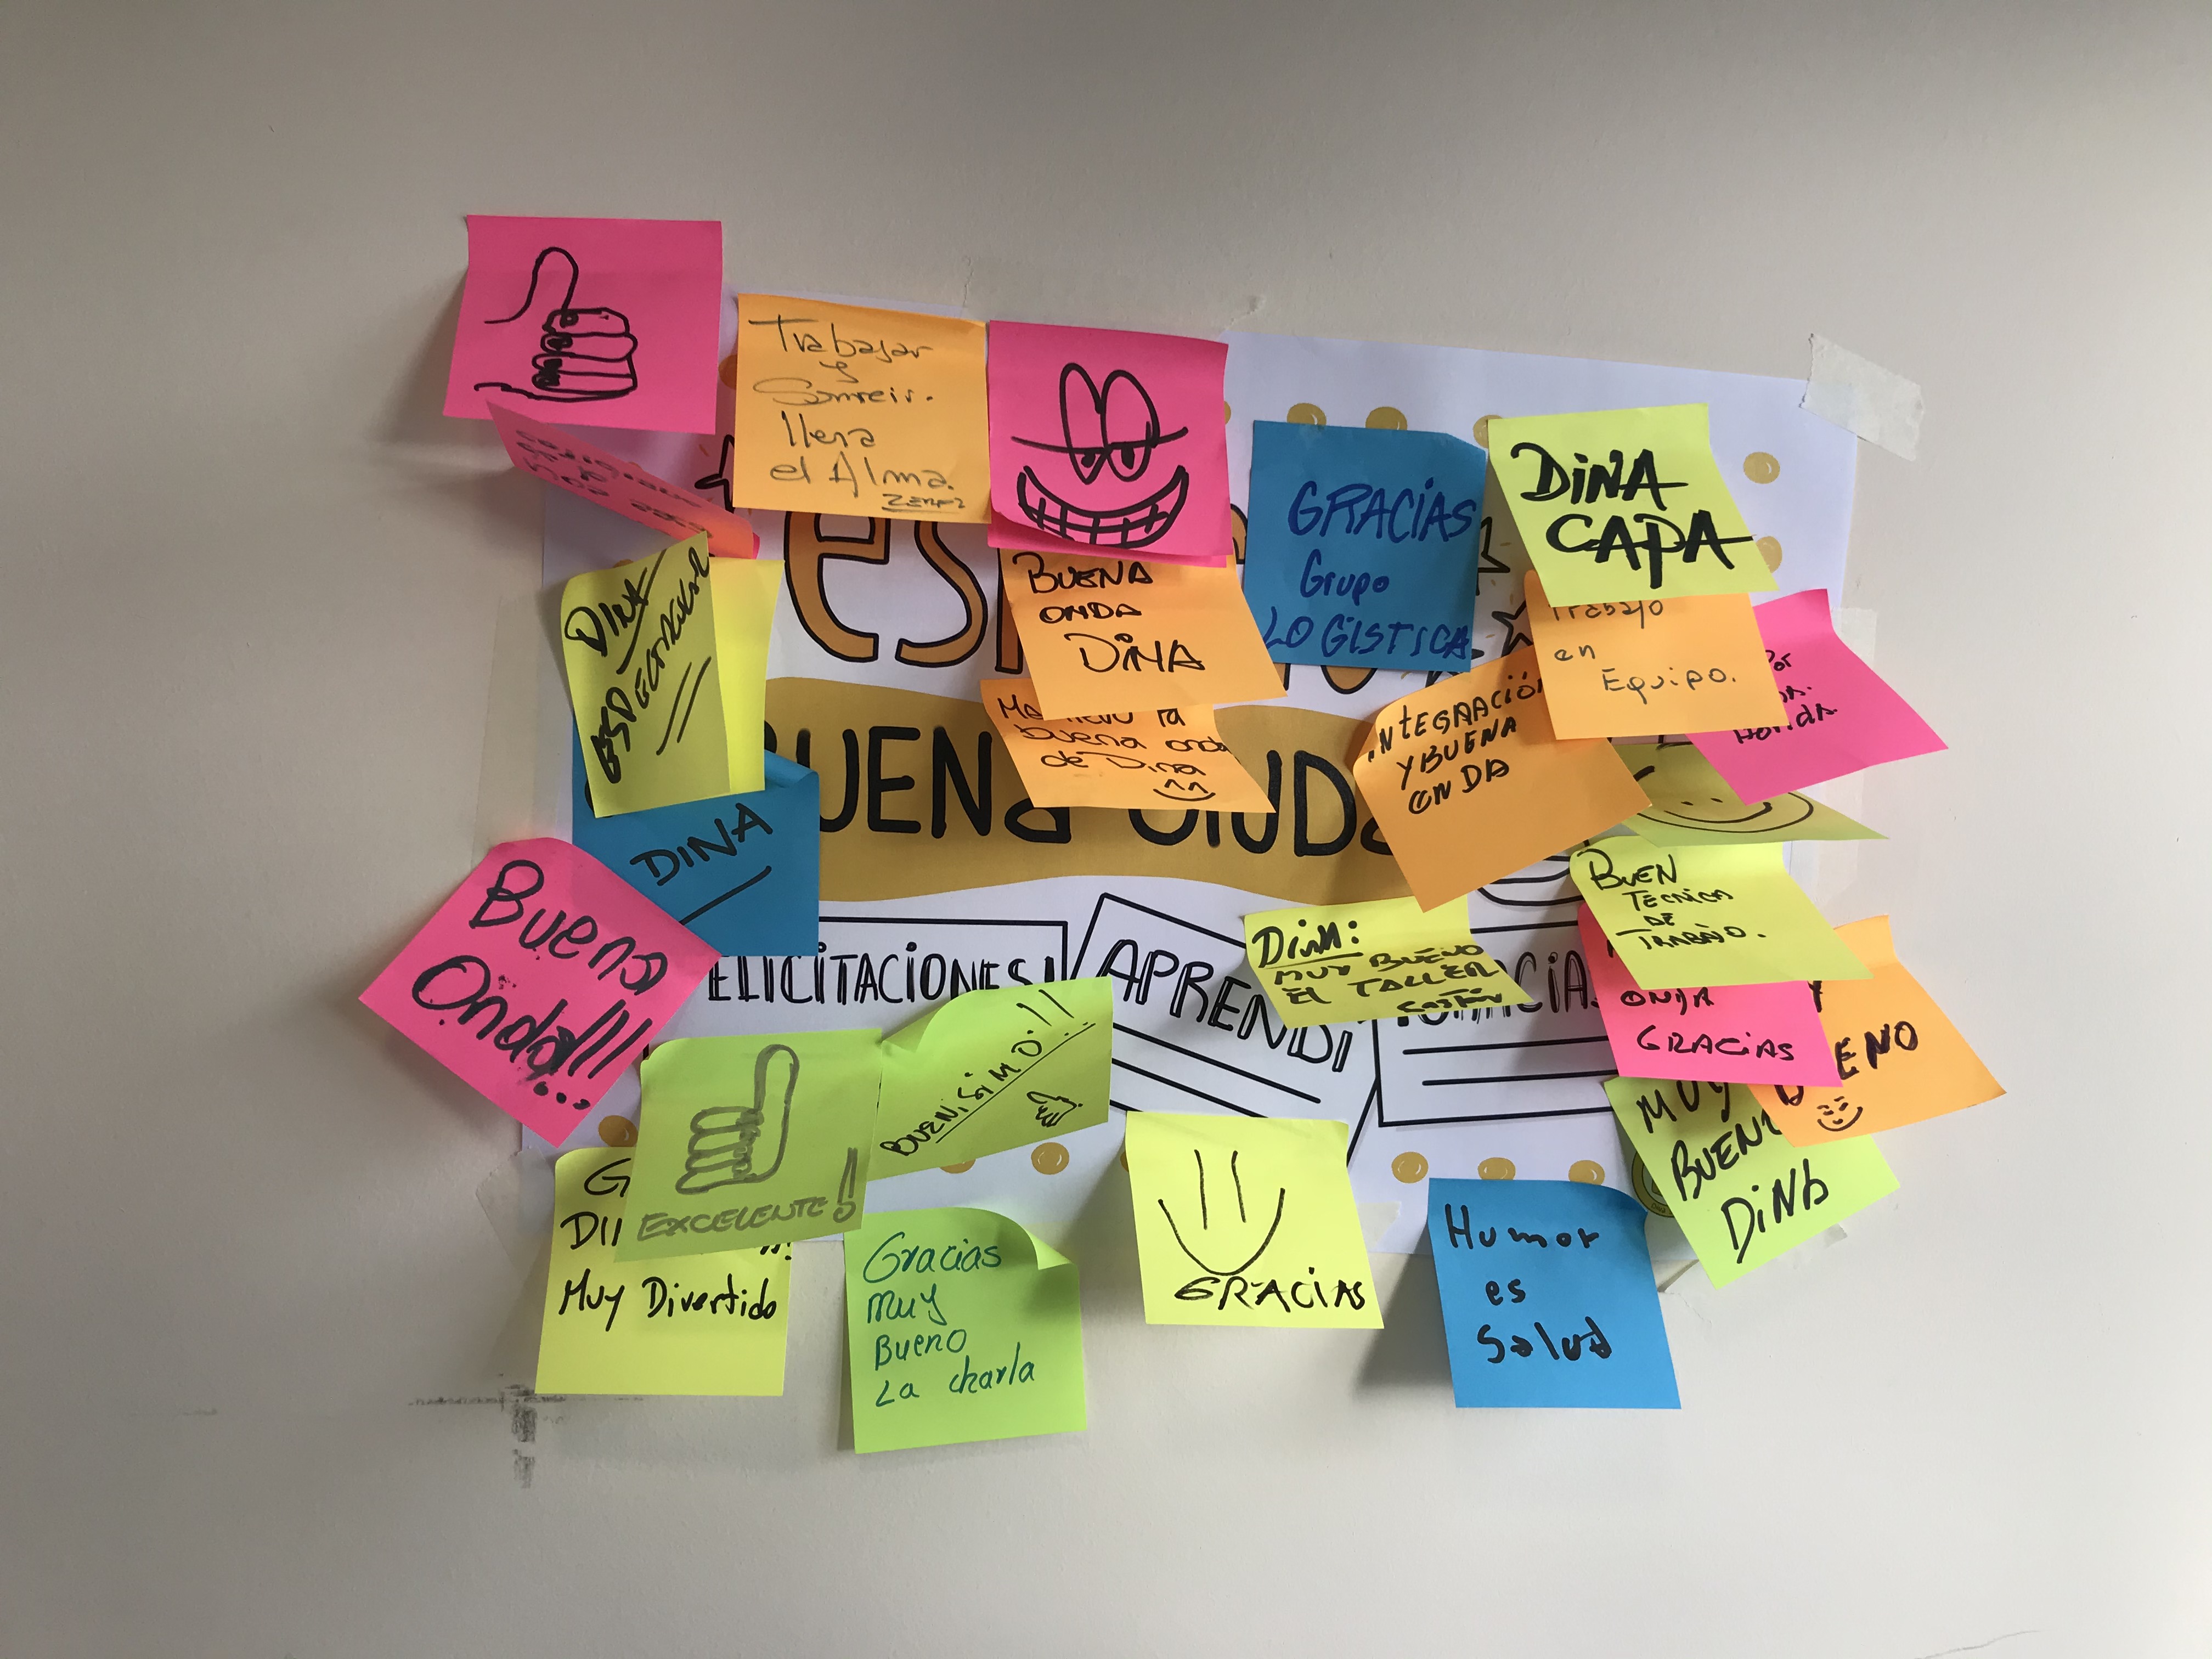 Trabajar
y
Sonreir.
llena
el Alma.
GRACIAS
Grupo
LOGISTICA
DINA
CAPA
DINA
ESPECTACULAR
BUENA
ONDA
DINA
Trabajo
en
Equipo.
Por
la
buena onda
de Dina
INTEGRACIÓN
Y BUENA
ONDA
BUENA ONDA
DINA
Buena
Onda!!!...
BUEN
TECNICA
DE
TRABAJO.
DINA:
MUY BUENO
EL TALLER
ELICITACIONES!
APRENDÍ
ONDA
GRACIAS
BUENISIMO!!
EXCELENTE!
MUY
BUENO
DINA
G
DI
Muy Divertido
Gracias
muy
Bueno
La charla
GRACIAS
Humor
es
Salud